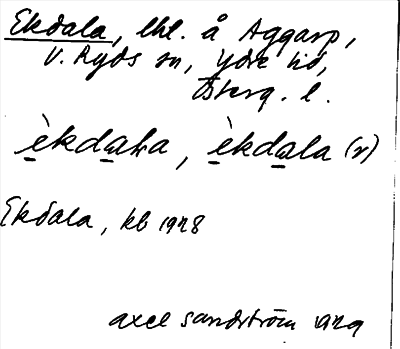 Ekdala, lht. å Aggarp,
V. Ryds sn, Ydre hd,
Österg. l.
èkdaka, èkdala (r)
Ekdala, kb 1928
Axel Sandström 1929